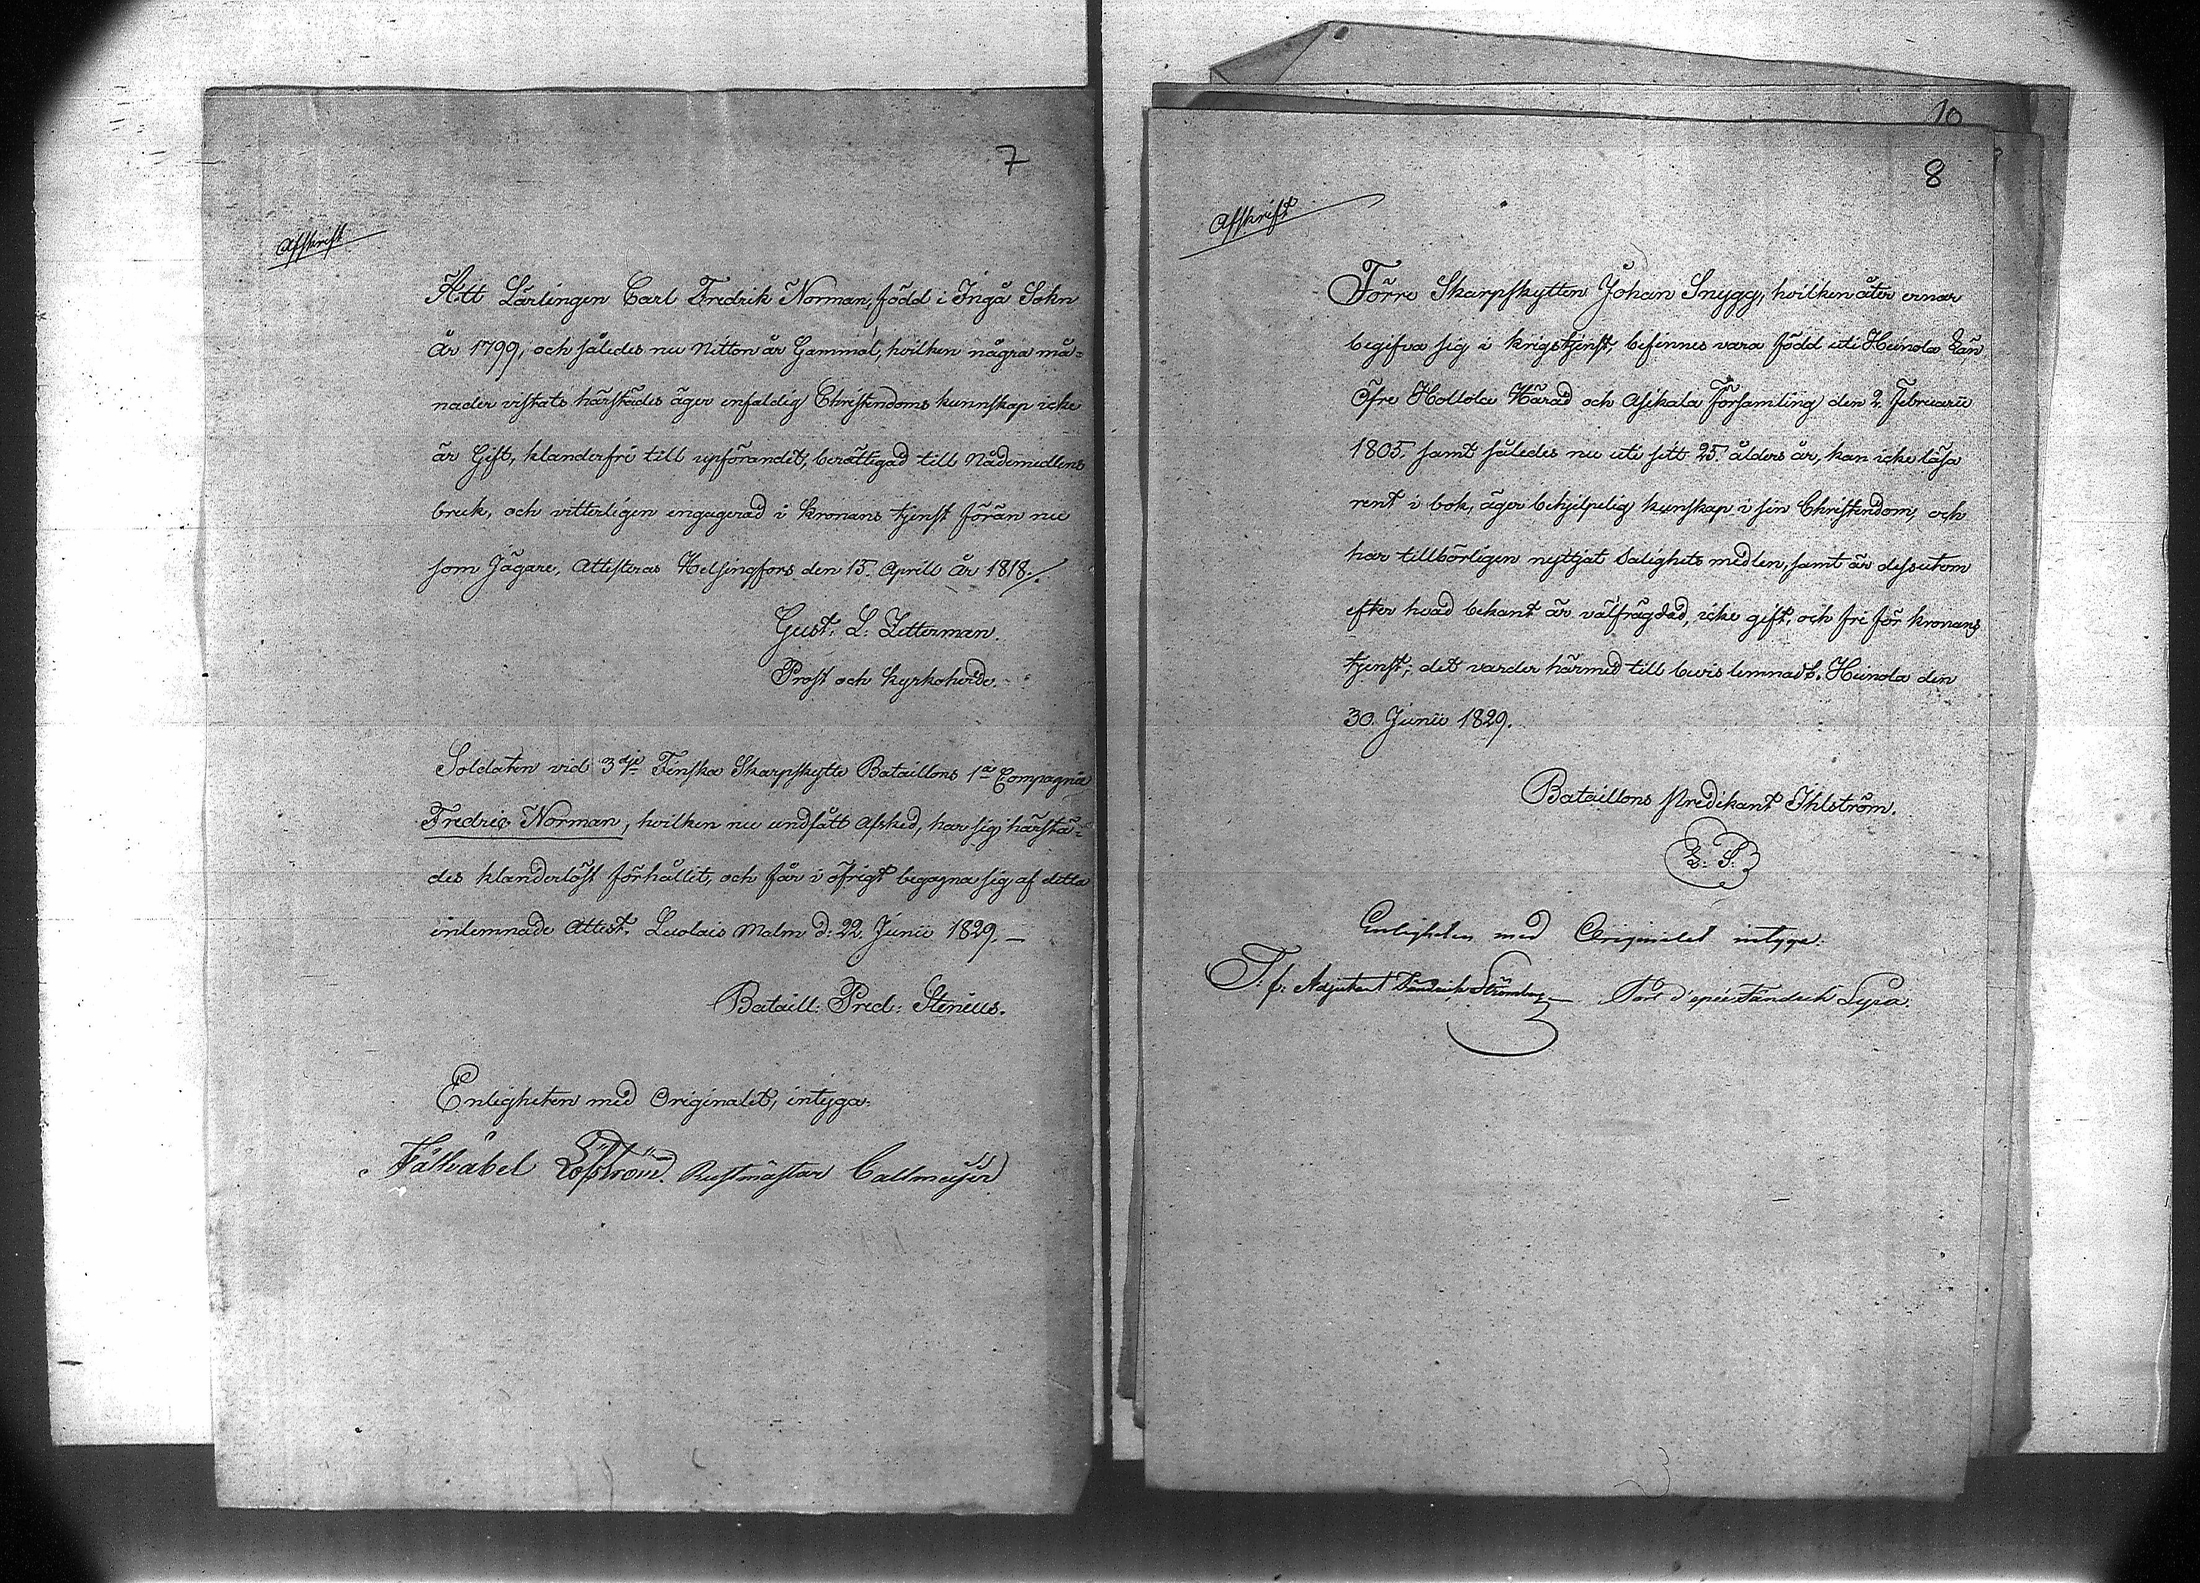 7
Afskrift
Att Lärlingen Carl Fredrik Norman, född i Ingå Sokn
År 1799, och således nu Nitton år Gammal, hvilken några må=
nader vistats härstädes äger enfaldig Christendoms kunnskap icke
är Gift, klanderfri till upförandet, berättigad till Nådemedlens
bruk, och vitterligen engagerad i Kronans tjenst förän nu
som Jägare, Attesteras Helsingfors den 15. Aprill År 1818./
Gust: L: Zetterman.
Prost och Kyrkoherde.
Soldaten vid 3dje Finska Skarpskytte Bataillons 1a Compagnie
Fredric Norman, hvilken nu undfått Afsked, har sig härstä=
des klanderlöst förhållit, och får i öfrigt begagna sig af detta
inlemnade Attest. Malm d: 22. Junii 1829. —
Bataill: Pred: Stenius.
Enligheten med Originalet, intyga:
Fältväbel Löfström. Rustmästar Callmeijer
10
8
Afskrift
Förre Skarpskytten Johan Snygg, hvilken åter ernar
begifva sig i krigstjenst, befinnes vara född uti Heinola Län
Öfre Hollola Härad och Asikala Församling den 2. Februarii
1805. samt således nu uti sitt 25. ålders år, kan icke läsa
rent i bok, äger behjelpelig kunskap i sin Christendom, och
har tillbörligen nyttjat Salighets medlen, samt är dessutom
efter hvad bekant är välfrägdad, icke gift, och fri för kronans
tjenst; det varder härmed till bevis lemnadt. Heinola den
30. Junii 1829.
Bataillons Predikant Ihlström.
L: S:
Enligheten med Originalet intyga:
T. f. Adjutant Fändrich Strömberg — Port d'epée Fändrich Lyra.